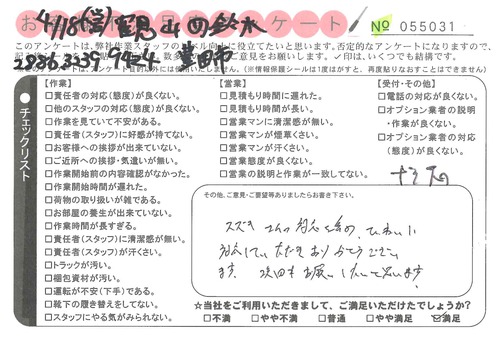 № 055031
このアンケートは、弊社作業スタッフのレベル向上に役立てたいと思います。否定的なアンケートになりますので、
2886,3539
豊田市
(※情報保護シールは1度はがすと、再度貼りなおすことはできません)
チェックリスト
【作業】
□責任者の対応(態度)が良くない。
□他のスタッフの対応(態度)が良くない。
□作業を見ていて不安がある。
□責任者(スタッフ)に好感が持てない。
□お客様への挨拶が出来ていない。
□ご近所への挨拶・気遣いが無い。
□作業開始前の内容確認がなかった。
□作業開始時間が遅れた。
□荷物の取り扱いが雑である。
□お部屋の養生が出来ていない。
□作業時間が長すぎる。
□責任者(スタッフ)に清潔感が無い。
□責任者(スタッフ)が汗くさい。
□トラックが汚い。
□梱包資材が汚い。
□運転が不安(下手)である。
□靴下の履き替えをしてない。
□スタッフにやる気がみられない。
【営業】
□見積もり時間に遅れた。
□見積もり時間が長い。
□営業マンに清潔感が無い。
□営業マンが煙草くさい。
□営業マンが汗くさい。
□営業態度が良くない。
□営業の説明と作業が一致してない。
【受付・その他】
□電話の対応が良くない。
□オプション業者の説明
・作業が良くない。
□オプション業者の対応
(態度)が良くない。
その他、ご意見・ご要望等ありましたらお書き下さい。
ていただきありがとうござい
ます。次回もお願いしたいと思います
☆当社をご利用いただきまして、ご満足いただけたでしょうか?
□不満 □やや不満 □普通 □やや満足 ☑満足